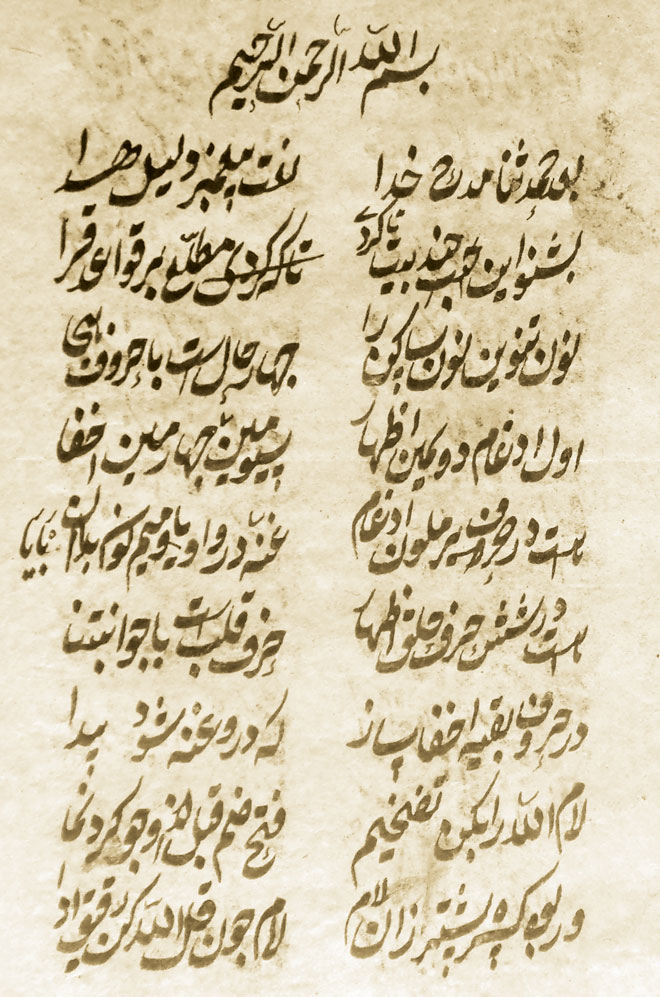 بسم الله الرحمن الرحیم
بعد حمد ثنا مدح خدا نعت پیغمبر و لیل هدا
بشنو این چند بیت تا کردی تا که کردی مطلع بر قواعد قرا
نون تنوین نون ساکن را چهار حال است با حروف
اول ادغام دویمین اظهار سیومین چهارمین اخفا
هست در حروف یرملون ادغام غنه در واو یا و میم نون
هست در شش حرف حلق اظهار حرف قلب است با جو انبتنا
در حروف بقیه اخفا ساز که درو غنه شود پیدا
لام الله را بکن تفخیم فتح ضم قبل
ور بود کسره پیشتر زان لام لام چون قل الله کن رقیق ادا